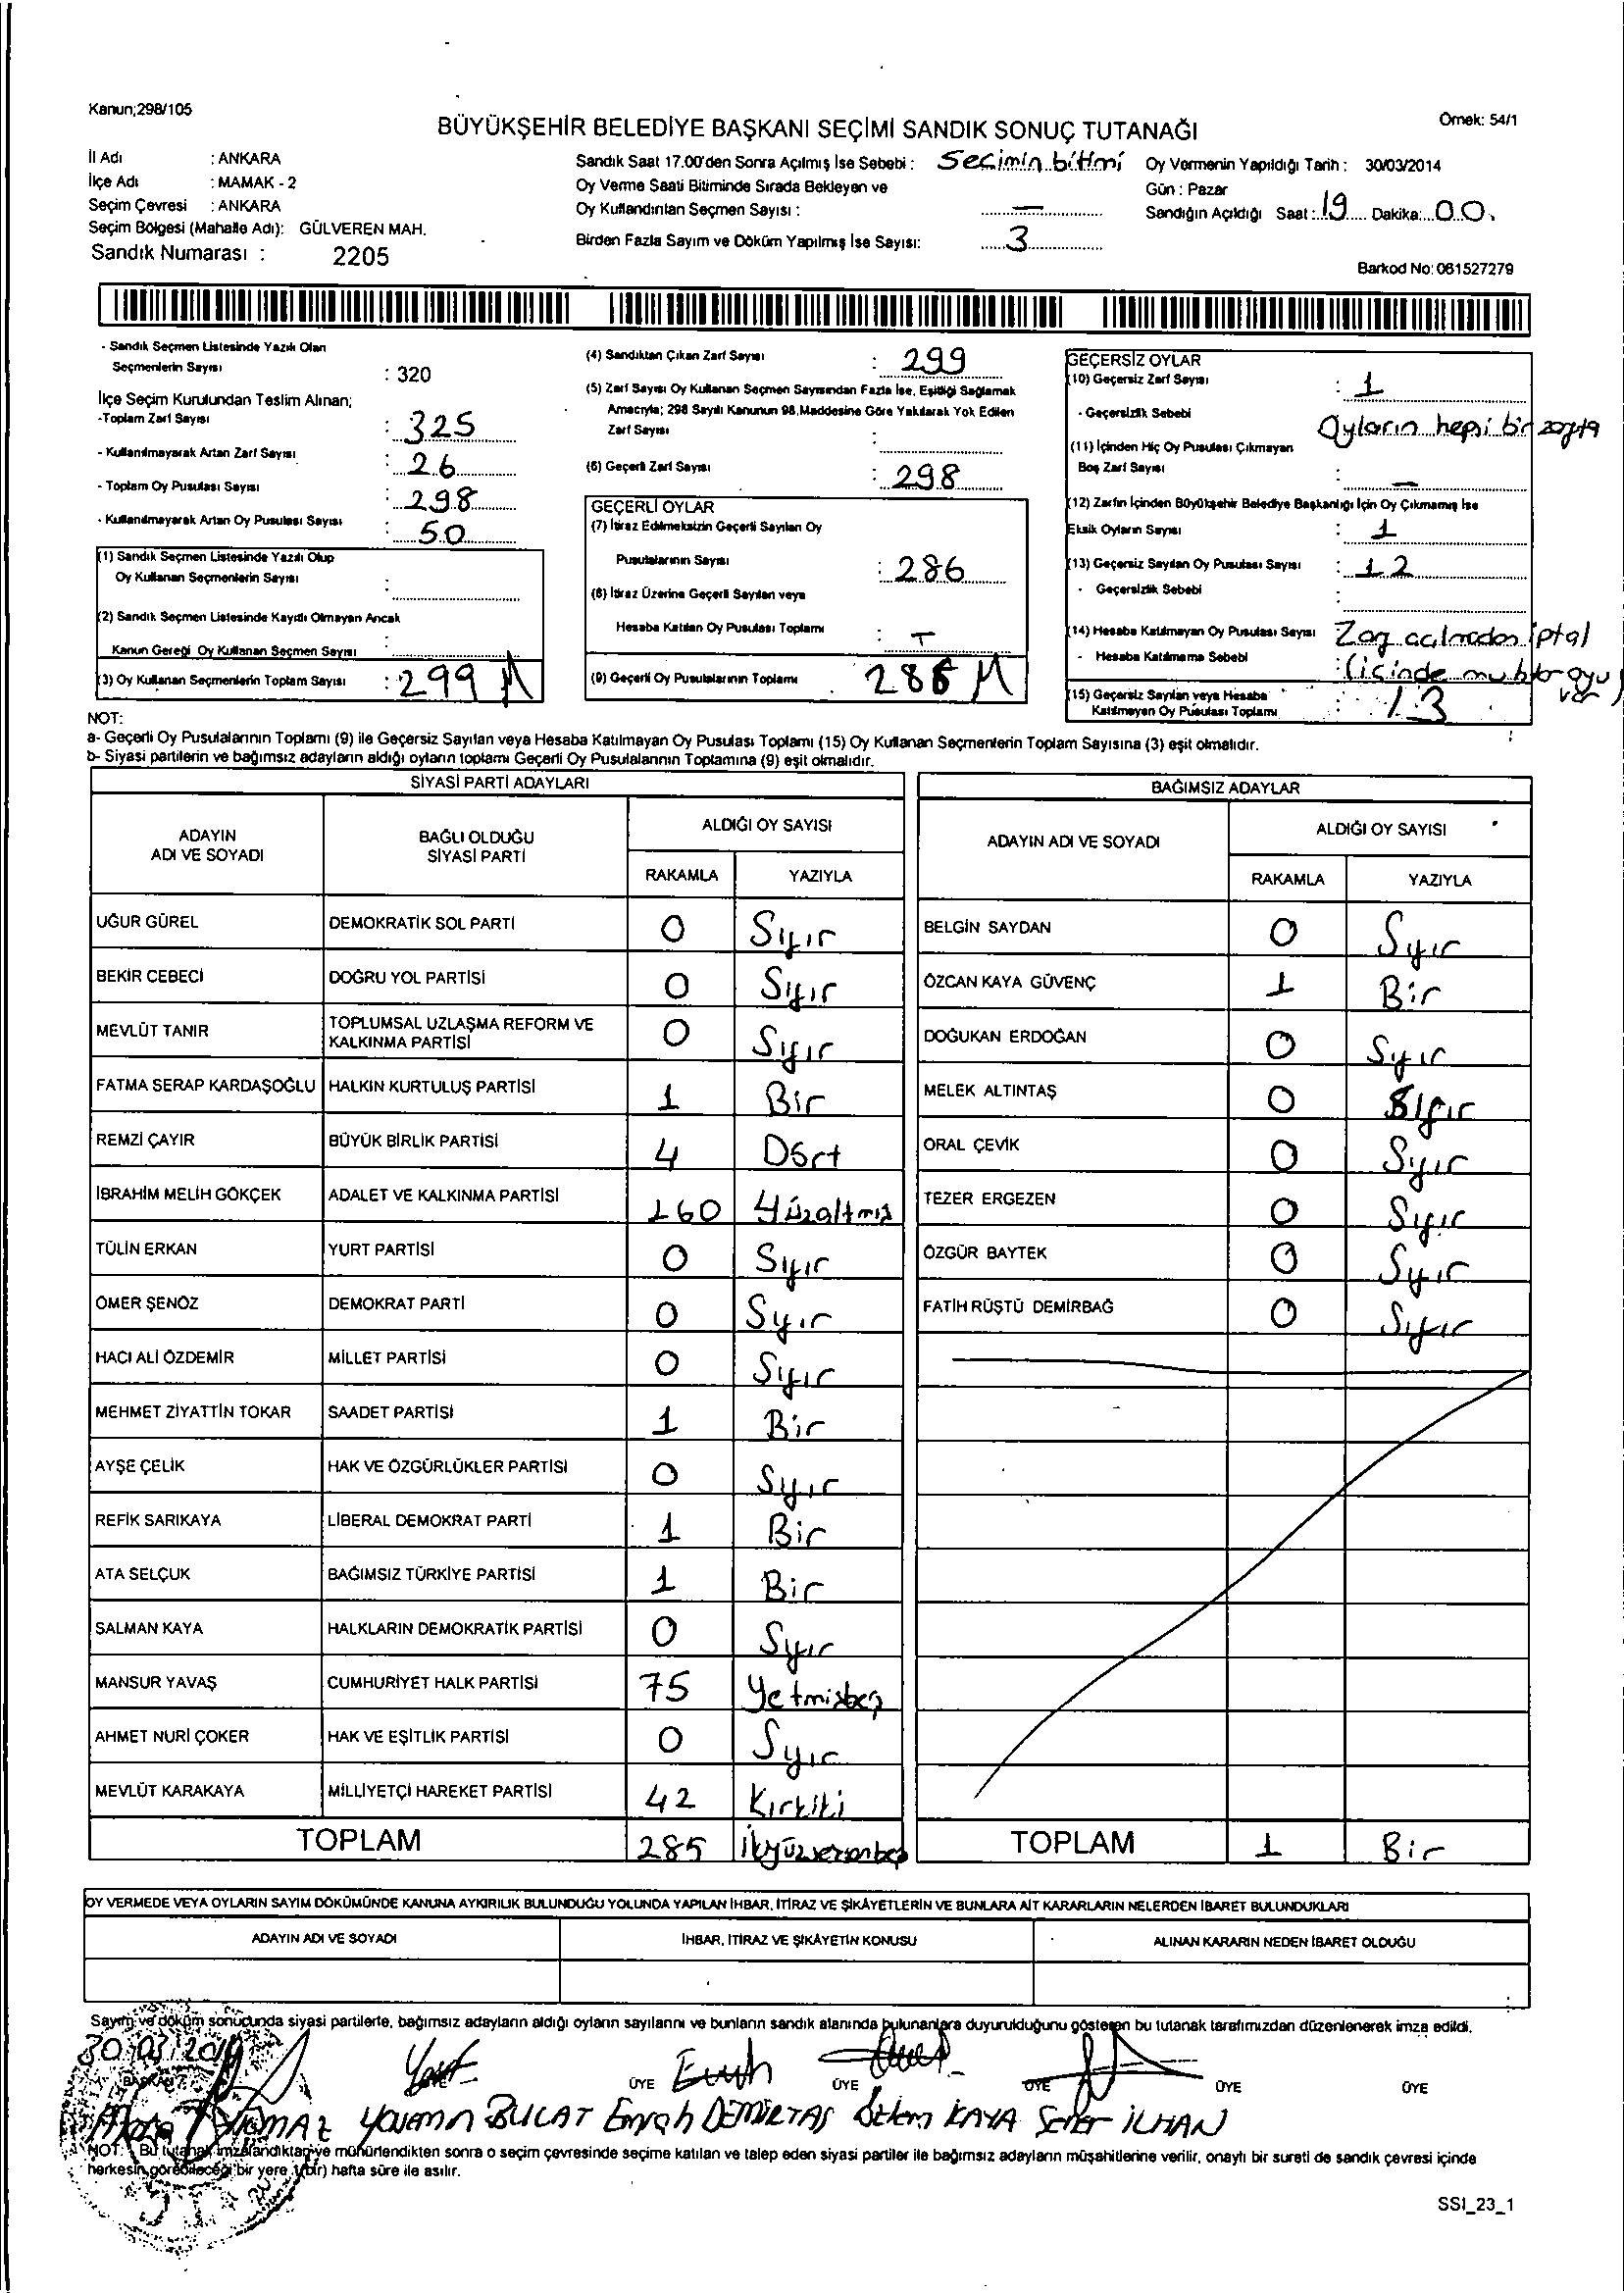 Kanun;298/105
Örnek: 54/1
BÜYÜKŞEHİR BELEDİYE BAŞKANI SEÇİMİ SANDIK SONUÇ TUTANAĞI
İl Adı : ANKARA
İlçe Adı : MAMAK - 2
Seçim Çevresi : ANKARA
Seçim Bölgesi (Mahalle Adı): GÜLVEREN MAH.
Sandık Numarası : 2205
Sandık Saat 17.00'den Sonra Açılmış İse Sebebi : Seçimin bitimi
Oy Verme Saati Bitiminde Sırada Bekleyen ve
Oy Kullandırılan Seçmen Sayısı : —
Birden Fazla Sayım ve Döküm Yapılmış İse Sayısı: 3
Oy Vermenin Yapıldığı Tarih : 30/03/2014
Gün : Pazar
Sandığın Açıldığı Saat : 19 Dakika: 00.
Barkod No: 061527279
- Sandık Seçmen Listesinde Yazılı Olan
Seçmenlerin Sayısı : 320
İlçe Seçim Kurulundan Teslim Alınan;
-Toplam Zarf Sayısı : 325
- Kullanılmayarak Artan Zarf Sayısı : 26
- Toplam Oy Pusulası Sayısı : 298
- Kullanılmayarak Artan Oy Pusulası Sayısı : 50
(1) Sandık Seçmen Listesinde Yazılı Olup
Oy Kullanan Seçmenlerin Sayısı :
(2) Sandık Seçmen Listesinde Kayıtlı Olmayan Ancak
Kanun Gereği Oy Kullanan Seçmen Sayısı :
(3) Oy Kullanan Seçmenlerin Toplam Sayısı : 299
(4) Sandıktan Çıkan Zarf Sayısı : 299
(5) Zarf Sayısı Oy Kullanan Seçmen Sayısından Fazla İse, Eşitliği Sağlamak
Amacıyla; 298 Sayılı Kanunun 98.Maddesine Göre Yakılarak Yok Edilen
Zarf Sayısı :
(6) Geçerli Zarf Sayısı : 298
GEÇERLİ OYLAR
(7) İtiraz Edilmeksizin Geçerli Sayılan Oy
Pusulalarının Sayısı : 286
(8) İtiraz Üzerine Geçerli Sayılan veya
Hesaba Katılan Oy Pusulası Toplamı :
(9) Geçerli Oy Pusulalarının Toplamı : 286
GEÇERSİZ OYLAR
(10) Geçersiz Zarf Sayısı : 1
- Geçersizlik Sebebi Oyların hepsi bir zarfta
(11) İçinden Hiç Oy Pusulası Çıkmayan
Boş Zarf Sayısı : —
(12) Zarfın İçinden Büyükşehir Belediye Başkanlığı İçin Oy Çıkmamış İse
Eksik Oyların Sayısı : 1
(13) Geçersiz Sayılan Oy Pusulası Sayısı : 12
- Geçersizlik Sebebi :
(14) Hesaba Katılmayan Oy Pusulası Sayısı Zarf açılmadan iptal
- Hesaba Katılmama Sebebi : (içinde muhtar oyu var)
(15) Geçersiz Sayılan veya Hesaba
Katılmayan Oy Pusulası Toplamı : 13
NOT:
a- Geçerli Oy Pusulalarının Toplamı (9) ile Geçersiz Sayılan veya Hesaba Katılmayan Oy Pusulası Toplamı (15) Oy Kullanan Seçmenlerin Toplam Sayısına (3) eşit olmalıdır.
b- Siyasi partilerin ve bağımsız adayların aldığı oyların toplamı Geçerli Oy Pusulalarının Toplamına (9) eşit olmalıdır.
SİYASİ PARTİ ADAYLARI
ADAYIN ADI VE SOYADI BAĞLI OLDUĞU SİYASİ PARTİ ALDIĞI OY SAYISI
RAKAMLA YAZIYLA
UĞUR GÜREL DEMOKRATİK SOL PARTİ 0 Sıfır
BEKİR CEBECİ DOĞRU YOL PARTİSİ 0 Sıfır
MEVLÜT TANIR TOPLUMSAL UZLAŞMA REFORM VE KALKINMA PARTİSİ 0 Sıfır
FATMA SERAP KARDAŞOĞLU HALKIN KURTULUŞ PARTİSİ 1 Bir
REMZİ ÇAYIR BÜYÜK BİRLİK PARTİSİ 4 Dört
İBRAHİM MELİH GÖKÇEK ADALET VE KALKINMA PARTİSİ 160 Yüzaltmış
TÜLİN ERKAN YURT PARTİSİ 0 Sıfır
ÖMER ŞENÖZ DEMOKRAT PARTİ 0 Sıfır
HACI ALİ ÖZDEMİR MİLLET PARTİSİ 0 Sıfır
MEHMET ZİYATTİN TOKAR SAADET PARTİSİ 1 Bir
AYŞE ÇELİK HAK VE ÖZGÜRLÜKLER PARTİSİ 0 Sıfır
REFİK SARIKAYA LİBERAL DEMOKRAT PARTİ 1 Bir
ATA SELÇUK BAĞIMSIZ TÜRKİYE PARTİSİ 1 Bir
SALMAN KAYA HALKLARIN DEMOKRATİK PARTİSİ 0 Sıfır
MANSUR YAVAŞ CUMHURİYET HALK PARTİSİ 75 Yetmişbeş
AHMET NURİ ÇOKER HAK VE EŞİTLİK PARTİSİ 0 Sıfır
MEVLÜT KARAKAYA MİLLİYETÇİ HAREKET PARTİSİ 42 Kırkiki
TOPLAM 285
BAĞIMSIZ ADAYLAR
ADAYIN ADI VE SOYADI ALDIĞI OY SAYISI
RAKAMLA YAZIYLA
BELGİN SAYDAN 0 Sıfır
ÖZCAN KAYA GÜVENÇ 1 Bir
DOĞUKAN ERDOĞAN 0 Sıfır
MELEK ALTINTAŞ 0 Sıfır
ORAL ÇEVİK 0 Sıfır
TEZER ERGEZEN 0 Sıfır
ÖZGÜR BAYTEK 0 Sıfır
FATİH RÜŞTÜ DEMİRBAĞ 0 Sıfır
TOPLAM 1 Bir
OY VERMEDE VEYA OYLARIN SAYIM DÖKÜMÜNDE KANUNA AYKIRILIK BULUNDUĞU YOLUNDA YAPILAN İHBAR, İTİRAZ VE ŞİKÂYETLERİN VE BUNLARA AİT KARARLARIN NELERDEN İBARET BULUNDUKLARI
ADAYIN ADI VE SOYADI İHBAR, İTİRAZ VE ŞİKÂYETİN KONUSU ALINAN KARARIN NEDEN İBARET OLDUĞU
Sayım ve döküm sonucunda siyasi partilerle, bağımsız adayların aldığı oyların sayılarını ve bunların sandık alanında bulunanlara duyurulduğunu gösteren bu tutanak tarafımızdan düzenlenerek imza edildi.
30.03.2014
BAŞKAN ÜYE ÜYE ÜYE ÜYE ÜYE ÜYE
YILMAZ BULAT Emrah DEMİRTAŞ Özlem KAYA Sener İLHAN
NOT: Bu tutanak imzalandıktan ve mühürlendikten sonra o seçim çevresinde seçime katılan ve talep eden siyasi partiler ile bağımsız adayların müşahitlerine verilir, onaylı bir sureti de sandık çevresi içinde
herkesin görebileceği bir yere 1(bir) hafta süre ile asılır.
SSI_23_1